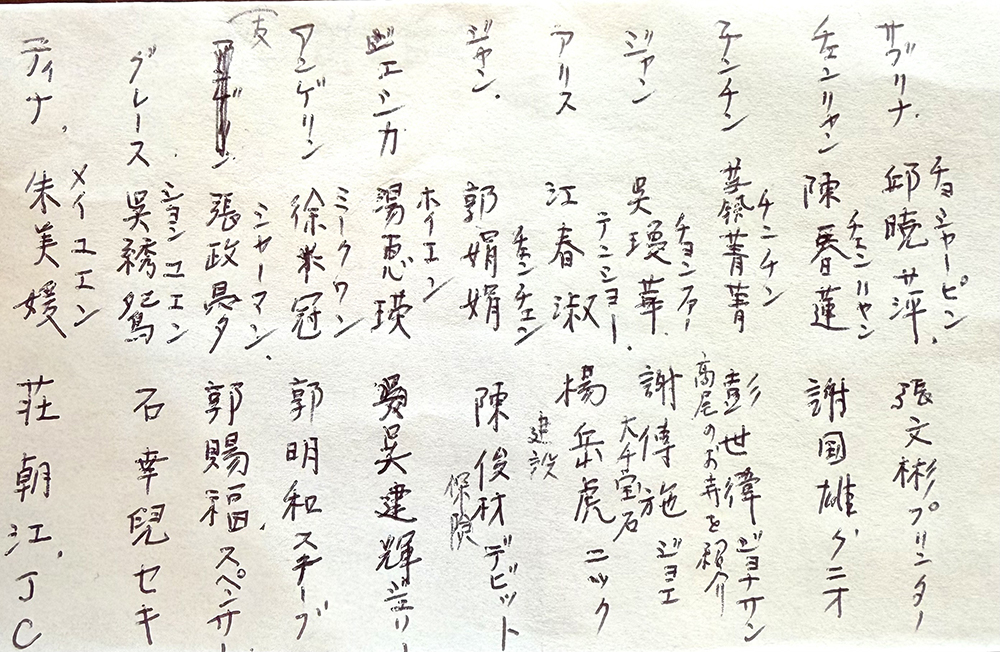 サブリナ 邱暁萍 チョシャーピン 張文彬 プリンター
チェンリャン 陳春蓮 チェンリャン 謝国雄 クニオ
チンチン 菁菁 チンチン 彭世偉 ジョナサン
高尾のお寺を紹介
ジャン 吳瓊華 チョンファー 謝傳施 ジョエ
大千宝石
アリス 江春淑 テンショー 楊岳虎 ニック
建設
ジャン 郭娟娟 チェンチェン 陳俊材 デビット
保険
ジェシカ 湯恵瑛 ホイエン 吳建輝 ジェリー
アンゲリン 徐米冠 ミークワン 郭明和 スチーブ
(友) 張政 シャーマン 郭賜福 スペンサー
グレース 吳綉鴛 ショウユエン 石幸兒 セキ
ティナ 朱美媛 メイユエン 荘朝江 JC